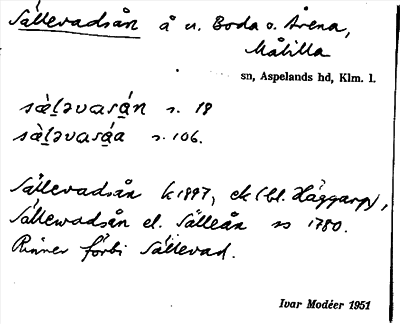 Sällevadsån å u. Boda o. Årena,
Målilla
sn, Aspelands hd, Klm. l.
sä̀l̠əvasá̠n s. 18
sä̀l̠əvasá̠a s. 106.
Sällevadsån k 1897, ek (bl. Häggarp),
Sällewadsån el. Sälleån ss 1780.
Rinner förbi Sällevad.
Ivar Modéer 1951